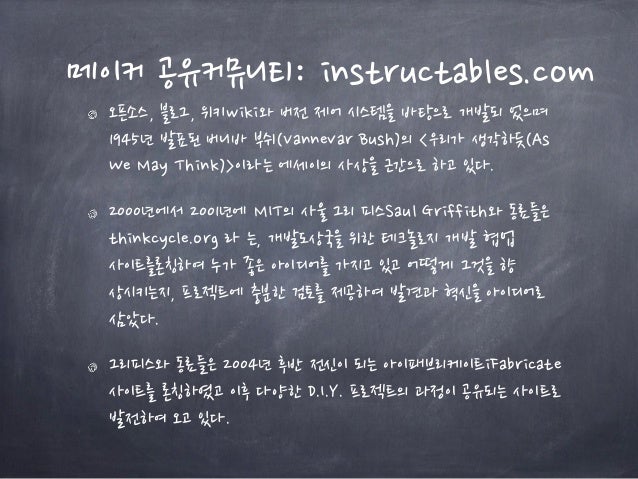 메이커 공유커뮤니티: instructables.com
오픈소스, 블로그, 위키wiki와 버전 제어 시스템을 바탕으로 개발되 었으며
1945년 발표된 버니바 부쉬(Vannevar Bush)의 <우리가 생각하듯(As
We May Think)>이라는 에세이의 사상을 근간으로 하고 있다.
2000년에서 2001년에 MIT의 사울 그리 피스Saul Griffith와 동료들은
thinkcycle.org 라 는, 개발도상국을 위한 테크놀로지 개발 협업
사이트를론칭하여 누가 좋은 아이디어를 가지고 있고 어떻게 그것을 향
상시키는지, 프로젝트에 충분한 검토를 제공하여 발견과 혁신을 아이디어로
삼았다.
그리피스와 동료들은 2004년 후반 전신이 되는 아이패브리케이트iFabricate
사이트를 론칭하였고 이후 다양한 D.I.Y. 프로젝트의 과정이 공유되는 사이트로
발전하여 오고 있다.